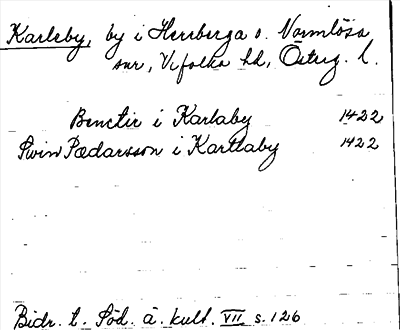 Karleby, by i Herrberga o. Normlösa
snr, Vifolka hd, Österg. l.
Benctir i Karlaby 1422
Swin Pædarsson i Karllaby 1422
Bidr. t. Söd. ä. kult. VII s. 126